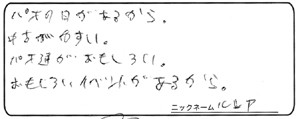 パチの日があるから。
ゆきがやすい。
パチ通がおもしろい。
おもしろいイベントがあるから。
ニックネーム ルルア